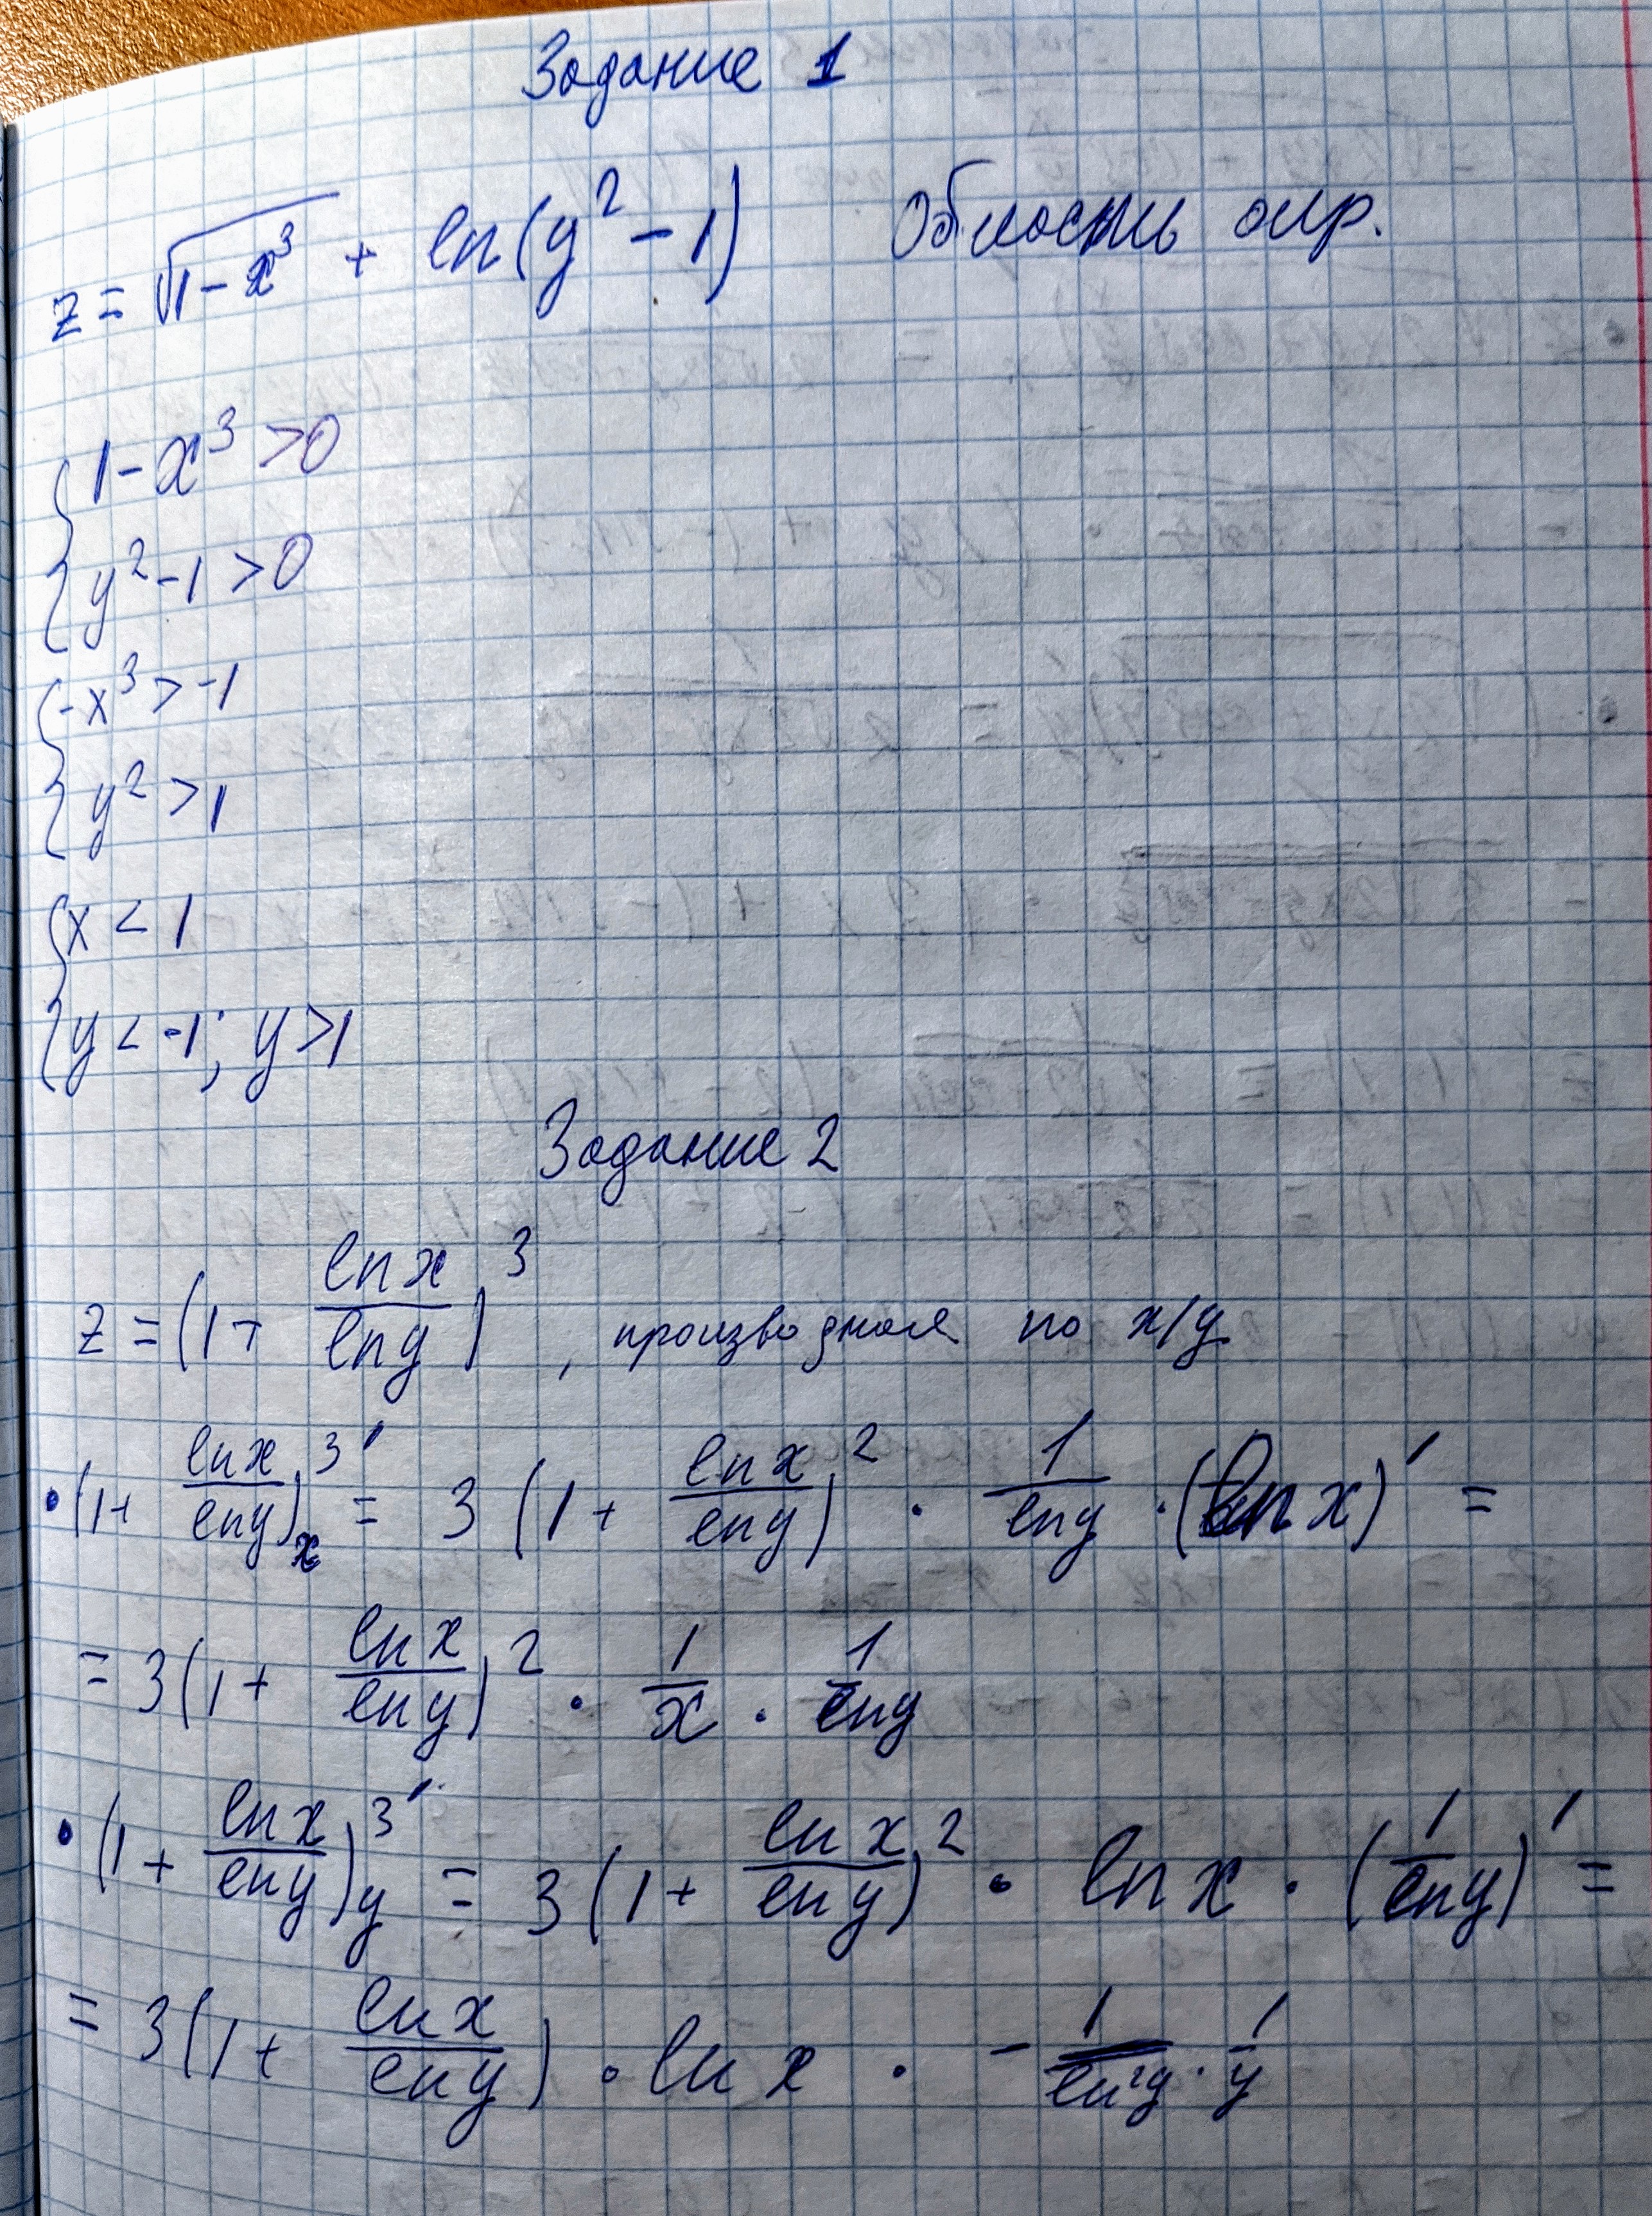 Задание 1
z = √(1-x³) + ln(y² - 1) Область опр.
{1-x³ >0
{y²-1 >0
{-x³ > -1
{y² > 1
{x < 1
{y < -1; y > 1
Задание 2
z = (1 + lnx/lny)³, производная по x/y
• (1 + lnx/lny)³'ₓ = 3 (1 + lnx/lny)² · 1/lny · (lnx)' =
= 3(1 + lnx/lny)² · 1/x · 1/lny
• (1 + lnx/lny)³'_y = 3(1 + lnx/lny)² · lnx · (1/lny)' =
= 3(1 + lnx/lny) · lnx · - 1/ln²y · 1/y